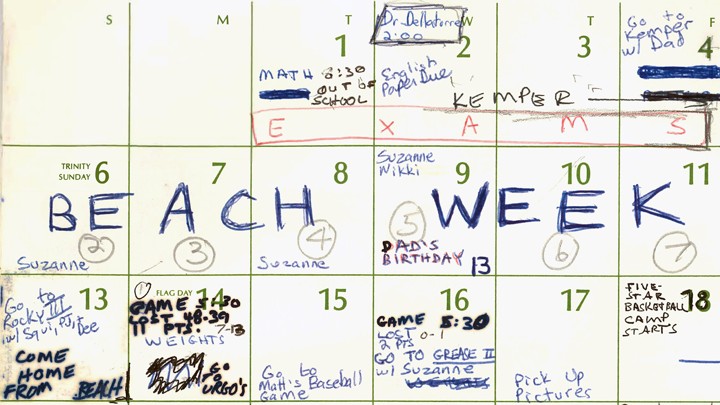 S M T W T F
1 2 3 4
Dr. Dellatorre
2:00
Go to
Kemper
w/ Dad
MATH 8:30
OUT OF
SCHOOL
English
Paper Due
KEMPER
E X A M S
TRINITY
SUNDAY 6 7 8 9 10 11
Suzanne
Nikki
BEACH WEEK
2 3 4 5 6 7
DAD'S
BIRTHDAY
13
Suzanne
Suzanne
13
Go to
Rocky III
w/ Squi, PJ,
COME
HOME
FROM BEACH
FLAG DAY 14
1
GAME 5:30
LOST 48-39
11 PTS. 7-13
WEIGHTS
GO
URGO'S
15
Go to
Matt's Baseball
Game
16
GAME 8:30
LOST 0-1
2 PTS
GO TO GREASE II
w/ Suzanne
17
Pick Up
Pictures
18
FIVE-
STAR
BASKETBALL
CAMP
STARTS